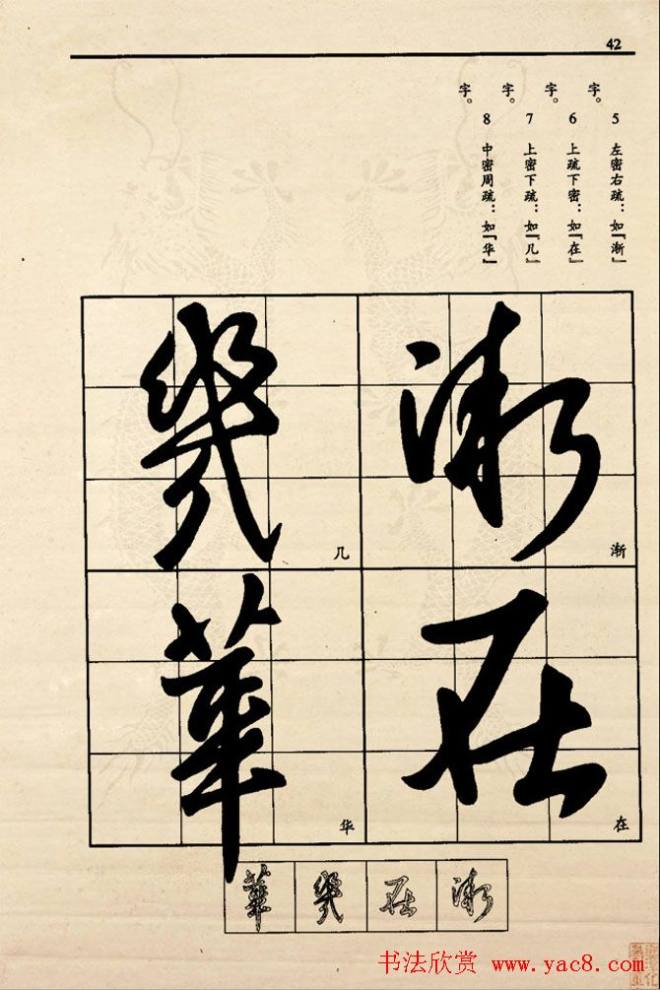 42
5 左密右疏:如「渐」
字。
6 上疏下密:如「在」
字。
7 上密下疏:如「几」
字。
8 中密周疏:如「华」
字。
漸
渐
在
在
幾
几
華
华
漸
在
幾
華
书法欣赏 www.yac8.com